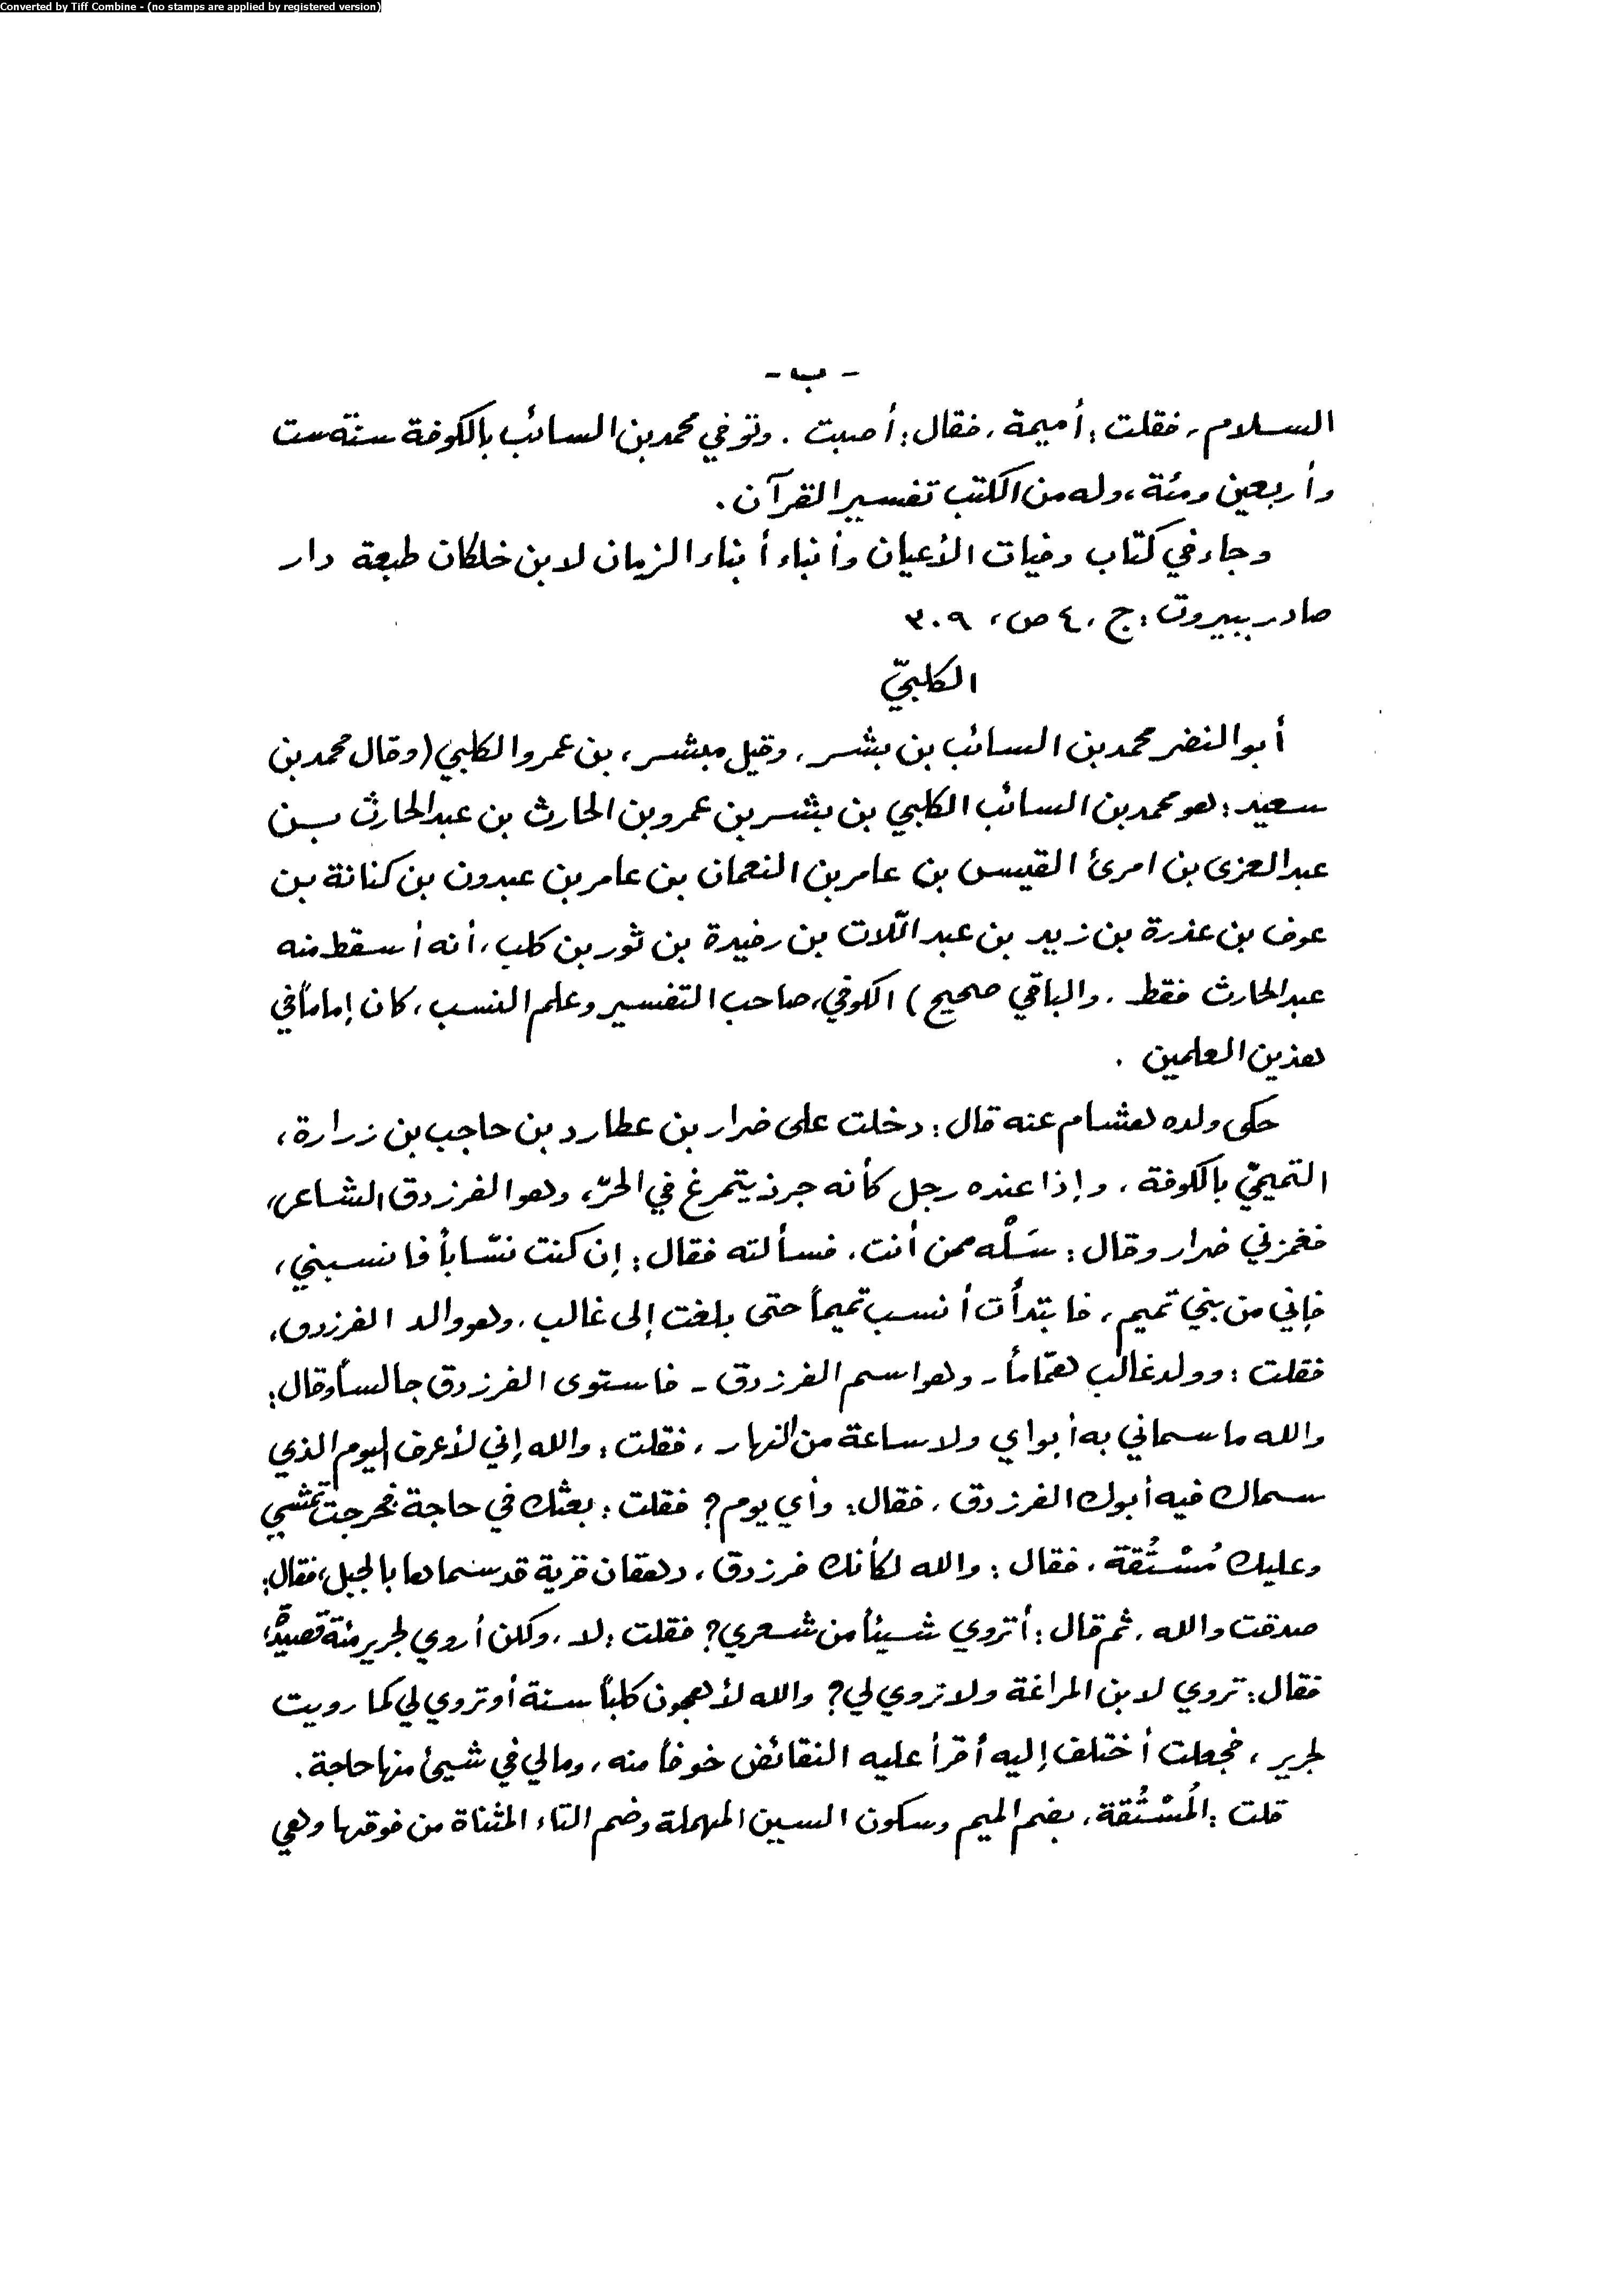 Converted by Tiff Combine - (no stamps are applied by registered version)
- ب -
السلام، فقلت: أميمة، فقال: أصبت. وتوفي محمد بن السائب بالكوفة سنة ست
وأربعين ومئة، وله من الكتب تفسير القرآن.
وجاء في كتاب وفيات الأعيان وأنباء أبناء الزمان لابن خلكان طبعة دار
صادر ببيروت: ج، ٤ ص، ٣٠٩
الكلبيّ
أبو النضر محمد بن السائب بن بشر، وقيل مبشر، بن عمرو الكلبي (وقال محمد بن
سعيد: هو محمد بن السائب الكلبي بن بشر بن عمرو بن الحارث بن عبد الحارث بن
عبد العزى بن امرئ القيس بن عامر بن النعمان بن عامر بن عبدون بن كنانة بن
عوف بن عذرة بن زيد بن عبد اللّات بن رفيدة بن ثور بن كلب، أنه أسقط منه
عبد الحارث فقط، والباقي صحيح) الكوفي، صاحب التفسير وعلم النسب، كان إماماً في
هذين العلمين.
حكى ولده هشام عنه قال: دخلت على ضرار بن عطارد بن حاجب بن زرارة،
التميميّ بالكوفة، وإذا عنده رجل كأنه جرذ يتمرغ في الحرّ، وهو الفرزدق الشاعر،
فغمزني ضرار وقال: سَلْه ممن أنت، فسألته فقال: إن كنت نسّاباً فانسبني،
فإني من بني تميم، فابتدأت أنسب تميماً حتى بلغت إلى غالب، وهو والد الفرزدق،
فقلت: وولد غالب همّاماً - وهو اسم الفرزدق - فاستوى الفرزدق جالساً وقال:
والله ما سماني به أبواي ولا ساعة من النهار، فقلت: والله إني لأعرف اليوم الذي
سماك فيه أبوك الفرزدق، فقال: وأي يوم؟ فقلت: بعثك في حاجة فخرجت تمشي
وعليك مُسْتُقة، فقال: والله لكأنك فرزدق، دهقان قرية قد سماها بالجبل، فقال:
صدقت والله، ثم قال: أتروي شيئاً من شعري؟ فقلت: لا، ولكن أروي لجرير مئة قصيدة،
فقال: تروي لابن المراغة ولا تروي لي؟ والله لأهجون كلباً سنة أو تروي لي كما رويت
لجرير، فجعلت أختلف إليه أقرأ عليه النقائض خوفاً منه، وما لي في شيئ منها حاجة.
قلت: المُسْتُقة، بضم الميم وسكون السين المهملة وضم التاء المثناة من فوقها وهي